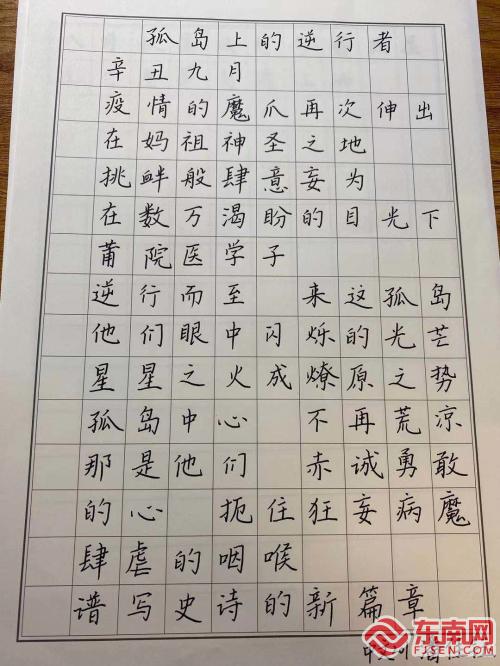 孤岛上的逆行者
辛丑九月
疫情的魔爪再次伸出
在妈祖神圣之地
挑衅般肆意妄为
在数万渴盼的目光下
莆院医学子
逆行而至 来这孤岛
他们眼中闪烁的光芒
星星之火成燎原之势
孤岛中心 不再荒凉
那是他们 赤诚勇敢
的心 扼住狂妄病魔
肆虐的咽喉
谱写史诗的新篇章
东南网
FJSEN.COM